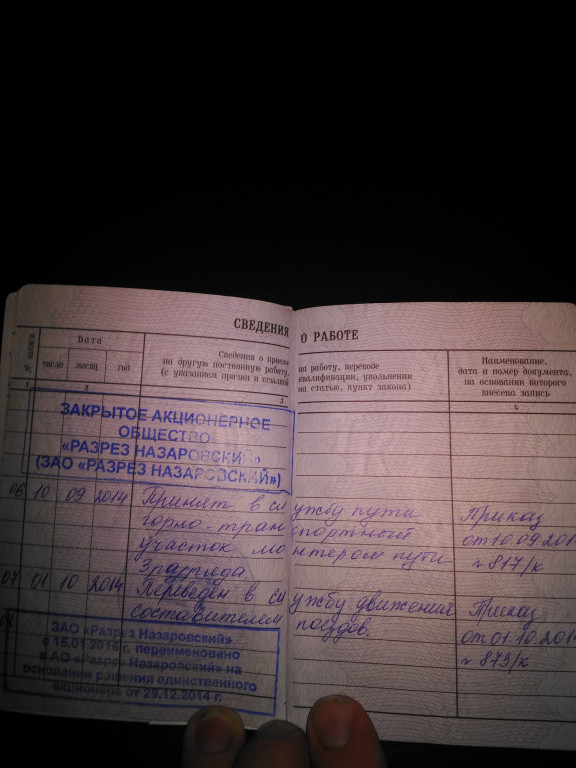 СВЕДЕНИЯ О РАБОТЕ
№ записи
Дата
число месяц год
Сведения о приеме на работу, переводе
на другую постоянную работу, квалификации, увольнении
(с указанием причин и ссылкой на статью, пункт закона)
Наименование,
дата и номер документа,
на основании которого
внесена запись
1 2 3 4
ЗАКРЫТОЕ АКЦИОНЕРНОЕ
ОБЩЕСТВО
«РАЗРЕЗ НАЗАРОВСКИЙ»
(ЗАО «РАЗРЕЗ НАЗАРОВСКИЙ»)
06 10 09 2014 Принят в службу пути Приказ
горно-транспортный от 10.09.201
участок монтером пути № 817/к
3 разряда
07 01 10 2014 Переведен в службу движения Приказ
составителем поездов. от 01.10.201
№ 873/к
08
ЗАО «Разрез Назаровский»
с 16.01.2015 г. переименовано
в АО «Разрез Назаровский» на
основании решения единственного
акционера от 29.12.2014 г.